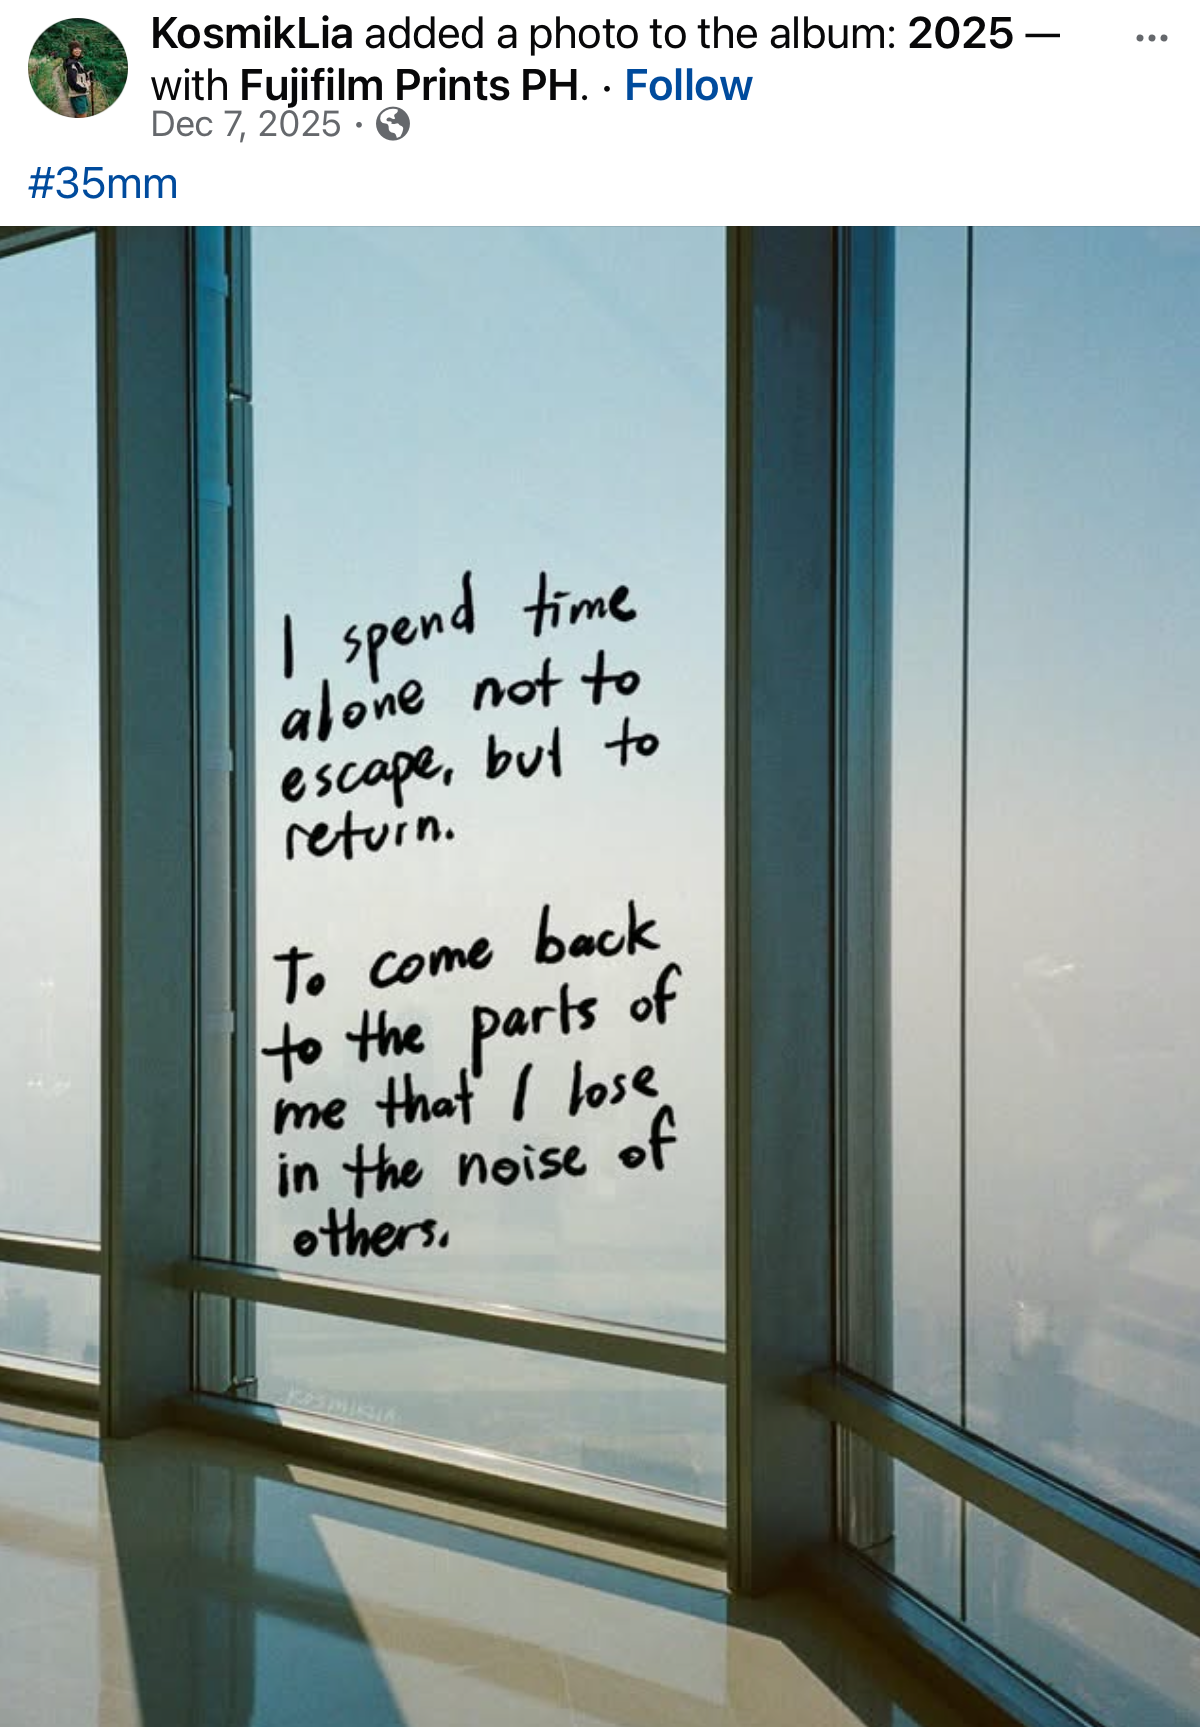 KosmikLia added a photo to the album: 2025 —
with Fujifilm Prints PH. · Follow
Dec 7, 2025 ·
#35mm
I spend time
alone not to
escape, but to
return.
To come back
to the parts of
me that I lose
in the noise of
others.
KOSMIKLIA